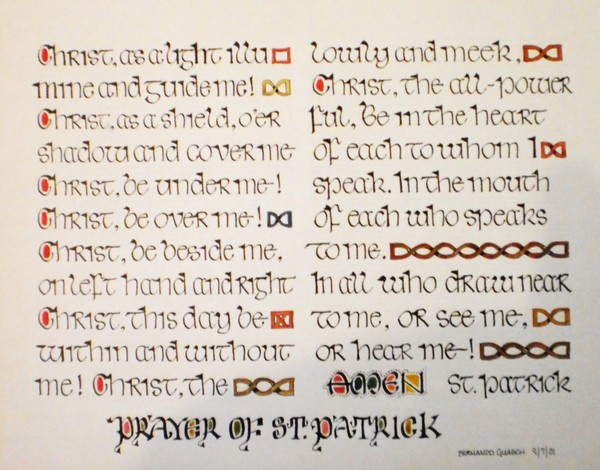 Christ, as a light illu
mine and guide me!
Christ, as a shield, o'er
shadow and cover me
Christ, be under me!
Christ, be over me!
Christ, be beside me,
on left hand and right
Christ, this day be
within and without
me! Christ, the
lowly and meek,
Christ, the all-power
ful, Be in the heart
of each to whom I
speak. In the mouth
of each who speaks
to me.
In all who draw near
to me, or see me,
or hear me!
AMEN St. Patrick
PRAYER OF ST. PATRICK
FERNANDO GUASCH 9/7/01